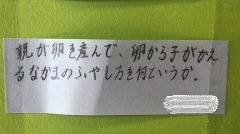 親が卵を産んで、卵から子がかえ
るなかまのふやしろを何というか。